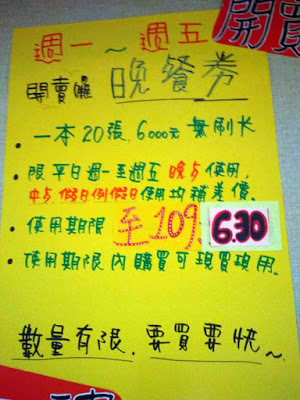 開賣
週一～週五
開賣囉 晚餐券
一本20張.6000元 無刷卡
• 限平日週一至週五 晚茶使用,
中茶.假日例假日使用均補差價.
• 使用期限 至109. 6.30
• 使用期限內購買可現買現用.
數量有限.要買要快~